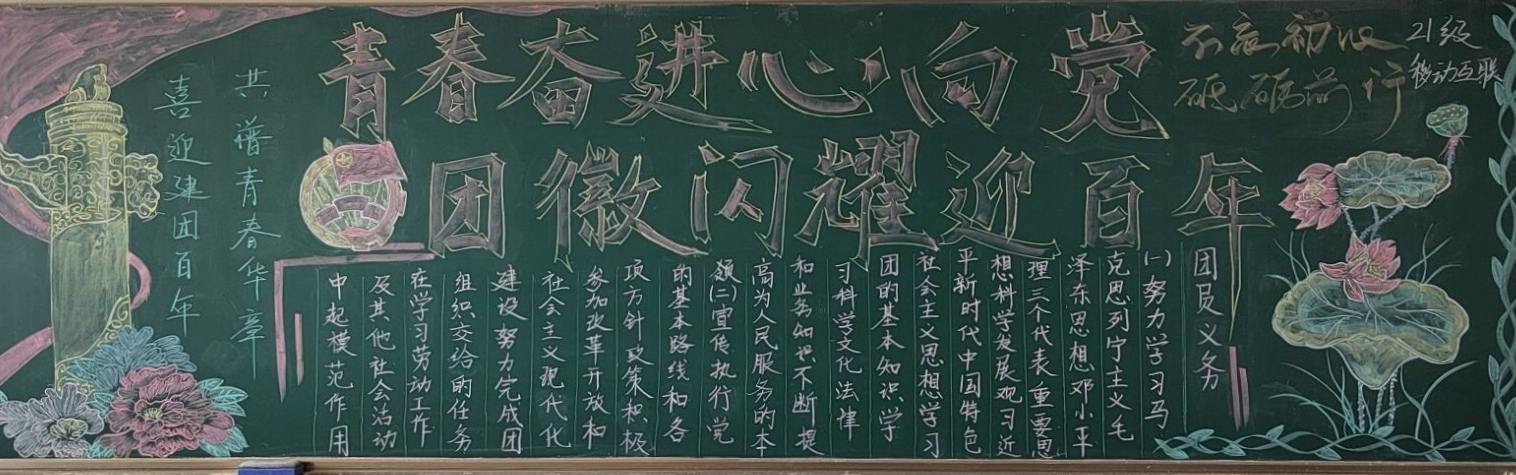 青春奋进心向党
团徽闪耀迎百年
不忘初心
砥砺前行
21级
移动互联
共谱青春华章
喜迎建团百年
团员义务
(一)努力学习马
克思列宁主义毛
泽东思想邓小平
理三个代表重要思
想科学发展观习近
平新时代中国特色
社会主义思想学习
团的基本知识学
习科学文化法律
和业务知识不断提
高为人民服务的本
领(二)宣传执行党
的基本路线和各
项方针政策积极
参加改革开放和
社会主义现代化
建设努力完成团
组织交给的任务
在学习劳动工作
及其他社会活动
中起模范作用